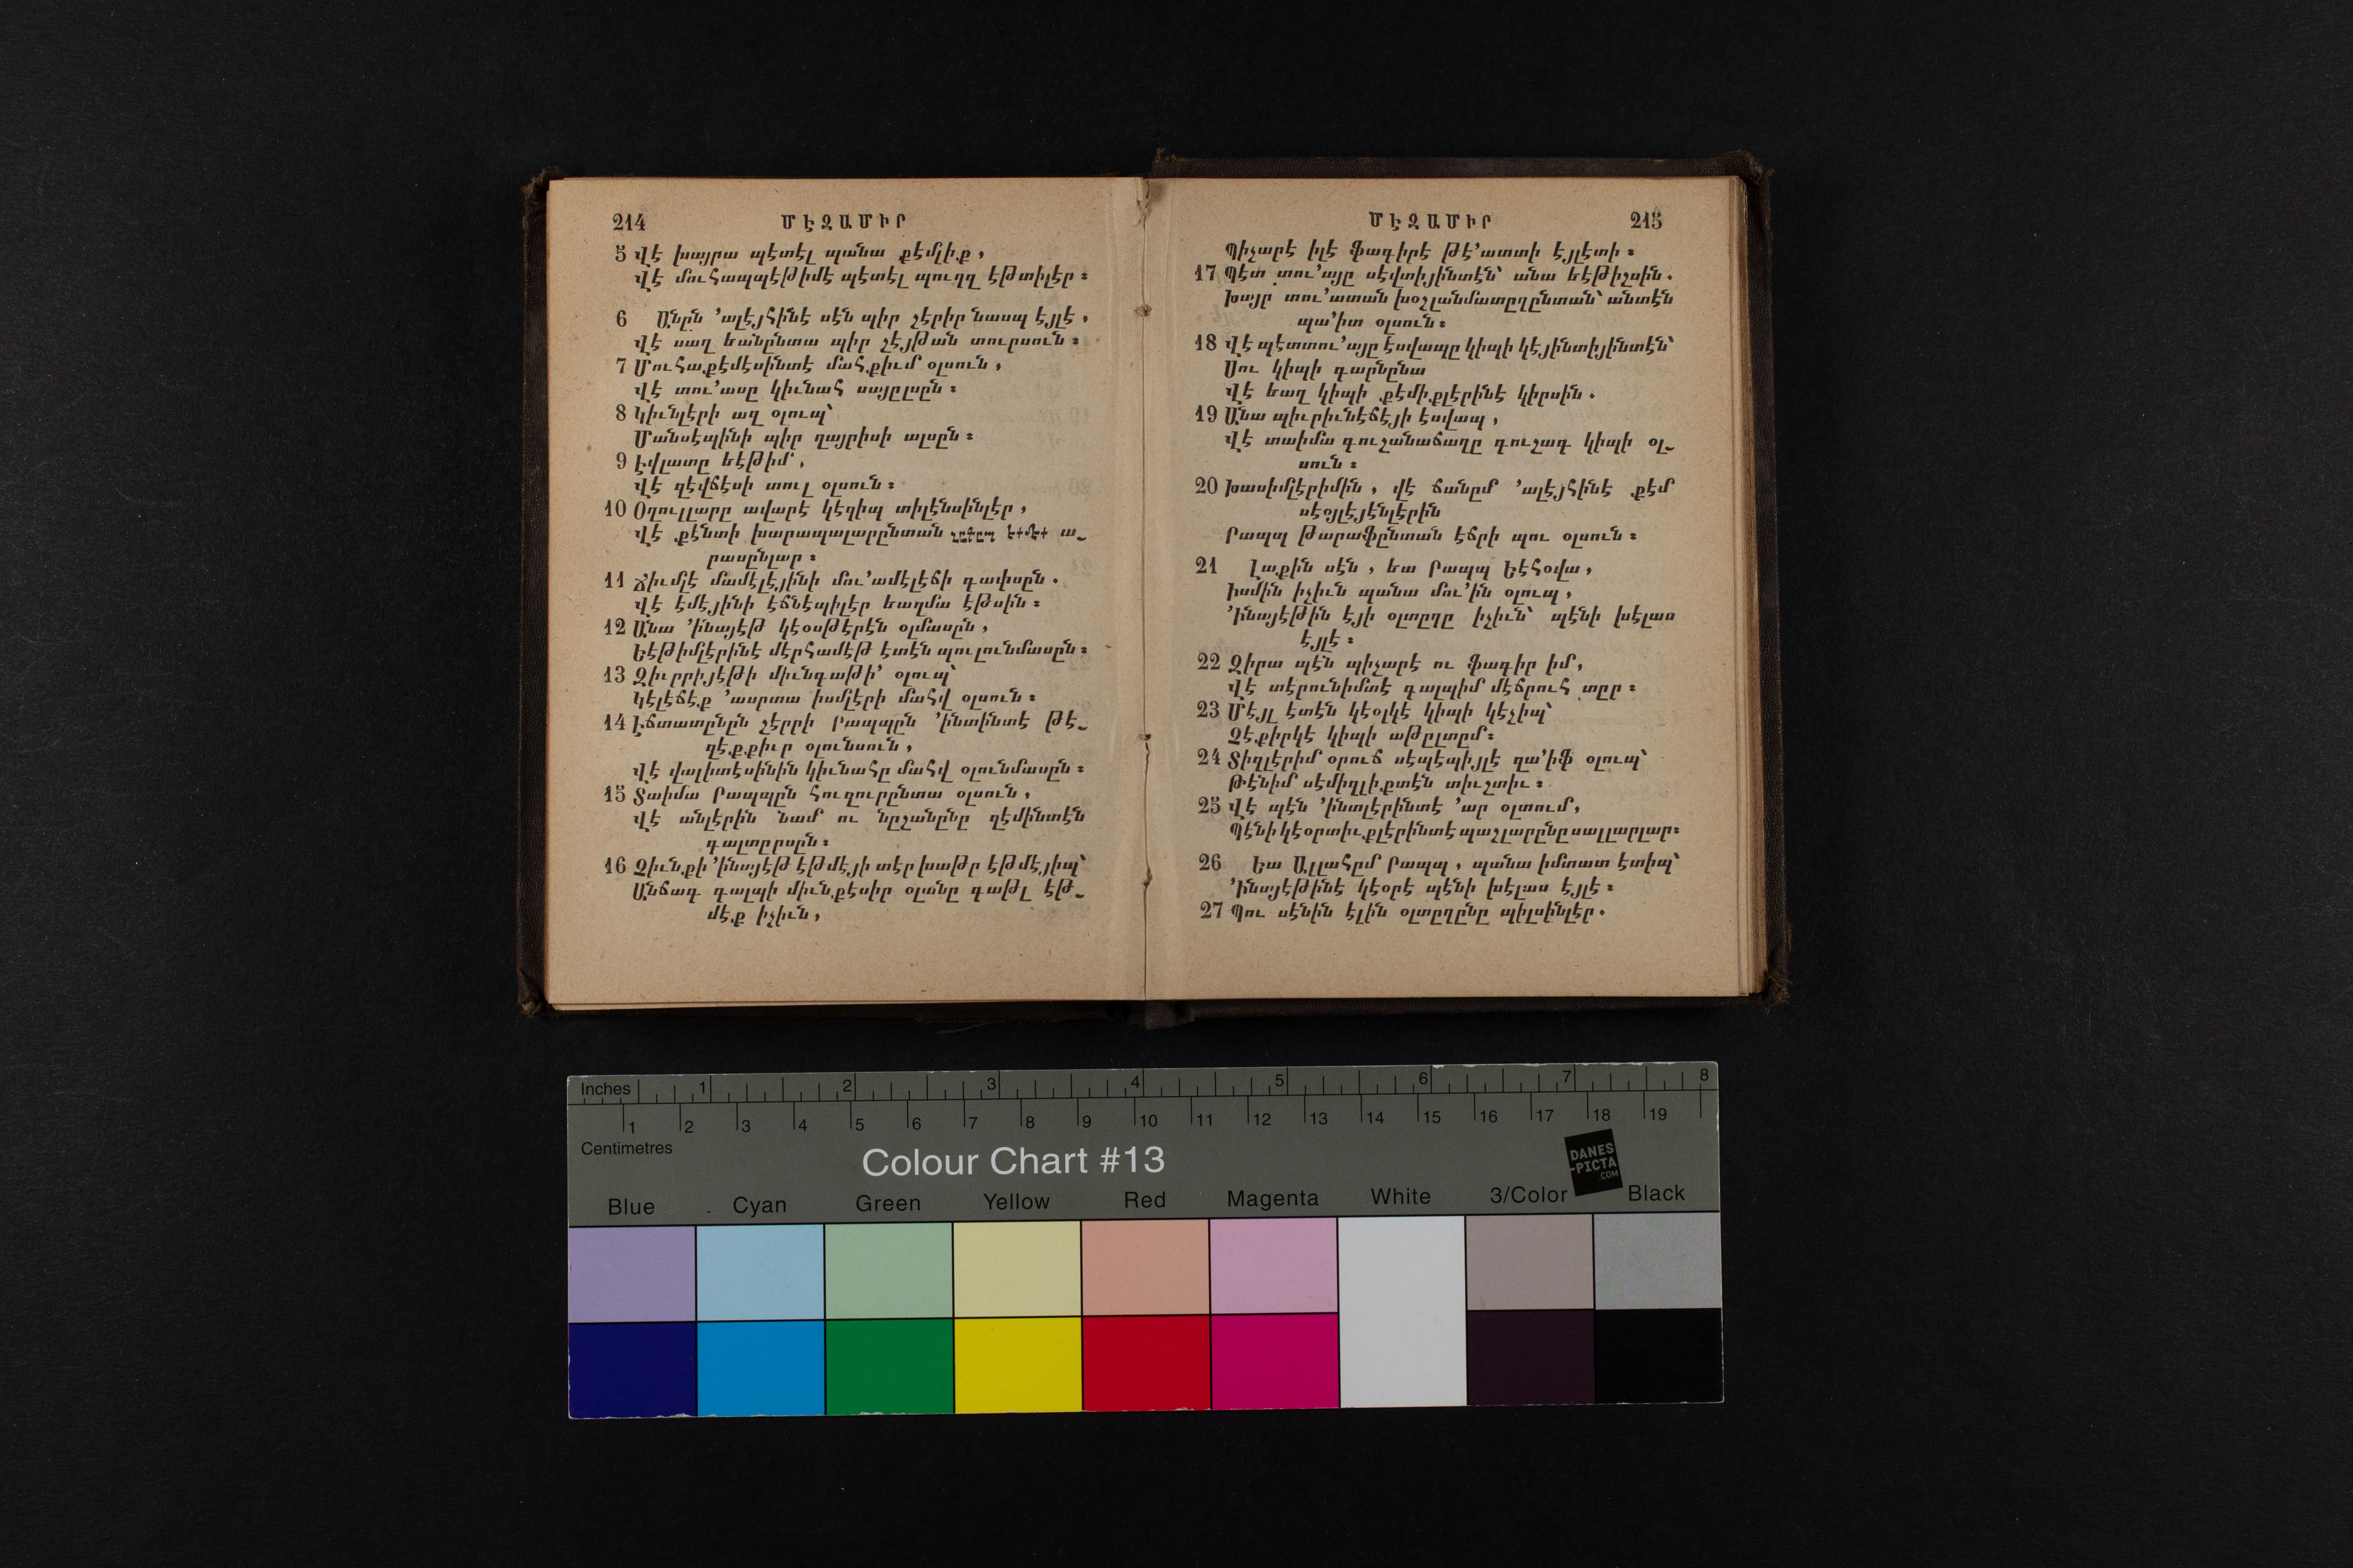 214 ՄԷԶԱՄԻՐ
5 Վէ խայրա պէտէլ պանա քէմլիք,
Վէ մուհապպէթիմէ պէտէլ պուղզ էթտիլէր։
6 Անըն ՚ալէյհինէ սէն պիր շէրիր նասպ էյլէ,
Վէ սաղ եանընտա պիր շէյթան տուրսուն։
7 Մուհաքէմէսինտէ մահքիւմ օլսուն,
Վէ տու՚ասը կիւնահ սայըլսըն։
8 Կիւնլէրի ազ օլուպ՝
Մանսէպինի պիր ղայրիսի ալսըն։
9 Էվլատը եէթիմ,
Վէ զէվճէսի տուլ օլսուն։
10 Օղուլլարը ավարէ կէզիպ տիլէնսինլէր,
Վէ քէնտի խարապալարընտան չըքըպ եէմէք ա֊
րասընլար։
11 Ճիւմլէ մամէլէյինի մու՚ամէլէճի գափսըն.
Վէ էմէյինի էճնէպիլէր եաղմա էթսին։
12 Անա ՚ինայէթ կէօսթէրէն օլմասըն,
Եէթիմլէրինէ մէրհամէթ էտէն պուլունմասըն։
13 Զիւրրիյէթի միւնգաթի՚ օլուպ՝
Կէլէճէք ՚ասրտա իսմլէրի մահվ օլսուն։
14 Էճտատընըն շէրրի Րապպըն ՚ինտինտէ թէ֊
զէքքիւր օլունսուն,
Վէ վալիտէսինին կիւնահը մահվ օլունմասըն։
15 Տաիմա Րապպըն հուզուրընտա օլսուն,
Վէ անլէրին նամ ու նըշանընը զէմինտէն
գալտըրսըն։
16 Զիւնքի ՚ինայէթ էթմէյի տէր խաթր էթմէյիպ՝
Անճագ գալպի միւնքէսիր օլանը գաթլ էթ֊
մէք իչիւն,
ՄԷԶԱՄԻՐ 215
Պիչարէ իլէ ֆագիրէ թէ՚ատտի էյլէտի։
17 Պէտ տու՚այը սէվտիյինտէն՝ անա եէթիշսին.
Խայր տու՚ատան խօշլանմատըղընտան՝ անտէն
պա՚իտ օլսուն։
18 Վէ պէտտու՚այը էսվապը կիպի կէյինտիյինտէն՝
Սու կիպի գարնընա
Վէ եաղ կիպի քէմիքլէրինէ կիրսին.
19 Անա պիւրիւնէճէյի էսվապ,
Վէ տաիմա գուշանաճաղը գուշագ կիպի օլ֊
սուն։
20 Խասիմլէրիմին, վէ ճանըմ ՚ալէյհինէ քէմ
սէօյլէյէնլէրին
Րապպ թարաֆընտան էճրի պու օլսուն։
21 Լաքին սէն, եա Րապպ Եէհօվա,
Իսմին իչիւն պանա մու՚ին օլուպ,
՚Ինայէթին էյի օլտըղը իչիւն՝ պէնի խէլաս
էյլէ։
22 Զիրա պէն պիչարէ ու ֆագիր իմ,
Վէ տէրունիմտէ գալպիմ մէճրուհ տըր։
23 Մէյլ էտէն կէօլկէ կիպի կէչիպ՝
Չէքիրկէ կիպի աթըլտըմ։
24 Տիզլէրիմ օրուճ սէպէպիյլէ զա՚իֆ օլուպ՝
Թէնիմ սէմիզլիքտէն տիւշտիւ։
25 Վէ պէն ՚ինտլէրինտէ ՚ար օլտում,
Պէնի կէօրտիւքլէրինտէ պաշլարընը սալլարլար։
26 Եա Ալլահըմ Րապպ, պանա իմտատ էտիպ՝
՚Ինայէթինէ կէօրէ պէնի խէլաս էյլէ։
27 Պու սէնին էլին օլտըղընը պիլսինլէր.
Inches 1 2 3 4 5 6 7 8
1 2 3 4 5 6 7 8 9 10 11 12 13 14 15 16 17 18 19
Centimetres
Colour Chart #13
DANES
-PICTA
.COM
Blue Cyan Green Yellow Red Magenta White 3/Color Black